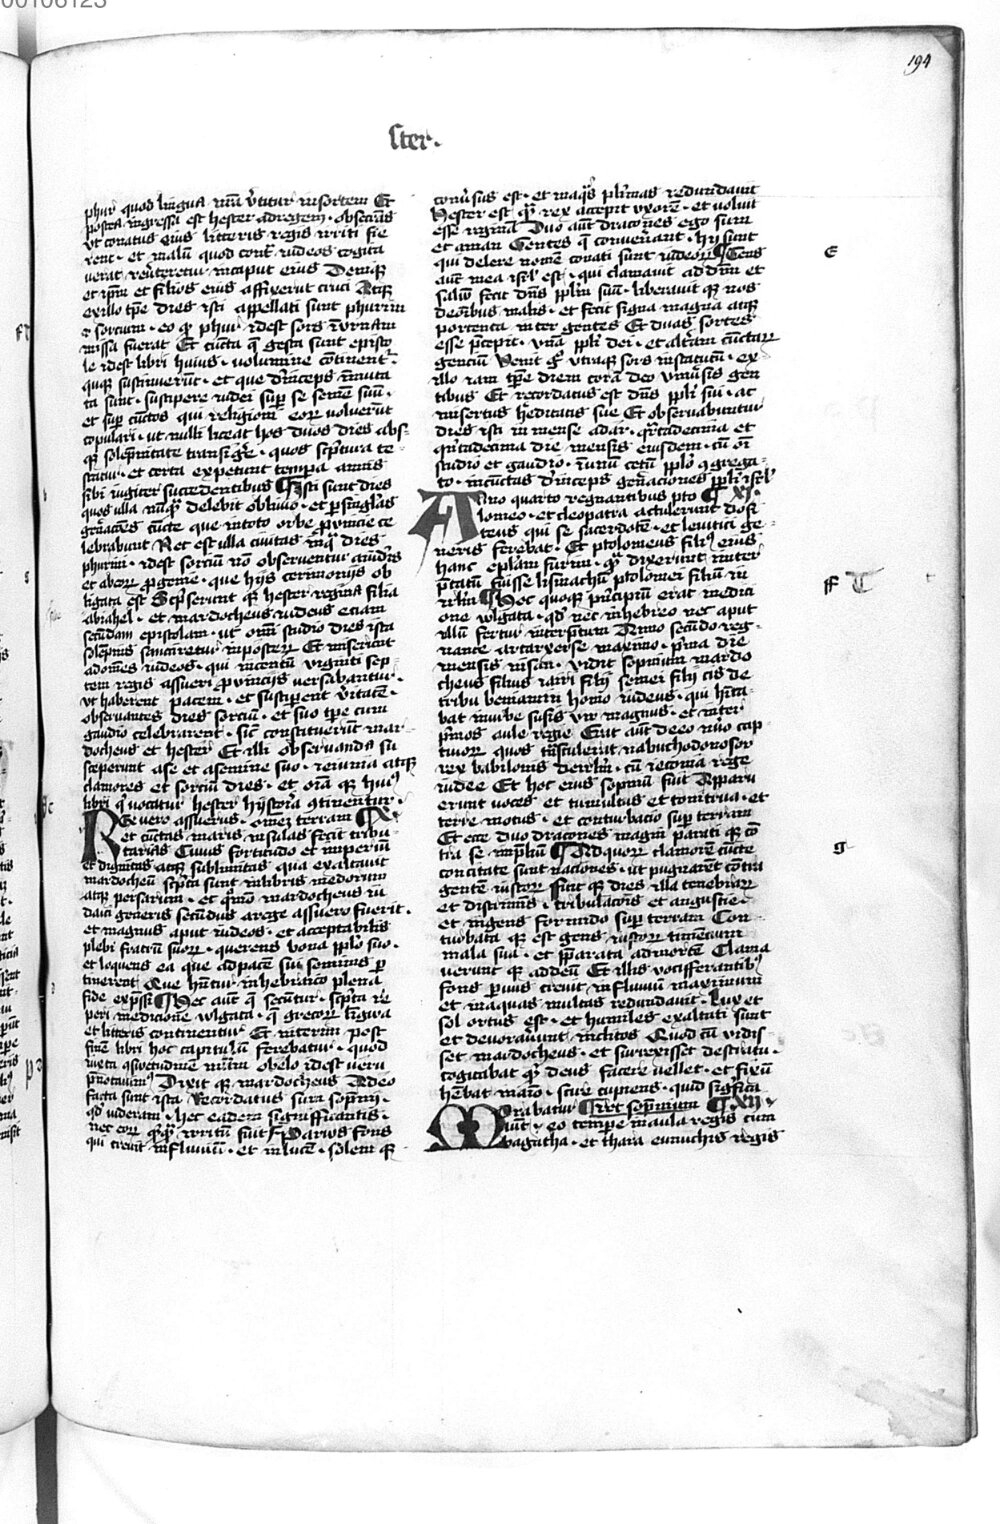 194
ster.
phur quod lingua nr̄a v̄titur in sortem Et
postea ingressa est hester ad regem · obsecrās
vt conatus eius litteris regis irriti fie
rent · et malū quod contͣ iudeos cogita
uerat reu̓teretur in caput eius Deniqꝫ
et ip̄m et filios eius affixerūt cruci Atqꝫ
ex illo tp̄e dies isti appellati sunt phurim
i sortium · eo qꝫ phur idest sors in vrnam
missa fuerat Et cūcta q̄ gesta sunt episto
le idest libri huius · volumine cōtinent̓
quiqꝫ sustinuerūt · et que deinceps īmuta
ta sunt · suscipere iudei suꝑ se et semē suū ·
et suꝑ cūctos qui religioni eoꝝ voluerūt
copulari · ut nulli liceat hos duos dies abs-
qꝫ solēpnitate transig̓e · quos scp̄tura te
statur · et certa expetunt tempa annis
sibi iugiter succedentibus ¶ Isti sunt dies
quos ulla nūqͣ delebit obliuio · et ꝑ singl̓as
gn̄aciōes cūcte que in toto orbe ꝓuincie ce
lebrabunt Nec est ulla ciuitas in qͣ dies
phurim · idest sorciū nō obseruentur a iudeis
et ab eoꝝ ꝓgenie · que hijs cerimonijs ob
ligata est Scp̄serunt qꝫ hester regina filia
abiahel · et mardocheus iudeus eciam
secūdam epistolam · ut om̄i studio dies ista
solēpnis sanciretur in posteꝝ Et miserunt
ad om̄es iudeos · qui in centū viginti sep
tem regis assueri ꝓuincijs versabantur ·
vt haberent pacem · et susciꝑent v̓itatē ·
obseruantes dies sorciū · et suo tp̄e cum
gaudio celebrarent · sic̄ constituerūt mar-
docheus et hester Et illi obseruanda su
sceperunt a se et a semine suo · ieiunia atqꝫ
clamores et sorciū dies · et om̄ia qꝫ huiꝰ
libri q̄ vocatur hester hijstoria ꝯtinentur ·
Rex vero assuerus · om̄eꝫ terram ¶ X ·
et cūctas maris insulas fecit tribu-
tarias Cuius fortitudo et imperiū
et dignitas atqꝫ sublimitas qua exaltauit
mardocheū scp̄ta sunt in libris medorum
atqꝫ persarum · et qͦmō mardocheus iu
daici generis secūdus a rege assuero fuerit ·
et magnus aput iudeos · et acceptabilis
plebi fratrū suoꝝ · querens bona pp̄lo suo ·
et loquens ea que ad pacē sui seminis ꝑ
tinerent Que hn̄tur in hebraico plena
fide exp̄ssi ¶ Hec aūt q̄ secūtur · scp̄ta re
peri in edicione wlgata · q̄ grecoꝝ lingwa
et litteris continentur Et interim post
finē libri hoc capitulū ferebatur · quod
iuxta ꝯsuetudinē nr̄am obelo idest veru
p̄notauimꝰ Dixit qꝫ mardocheus A deo
facta sunt ista Recordatus sum sompnij ·
qd̓ videram · hec eadem significantis ·
nec eoꝝ qͥcqͣ irritū fuit ¶ Paruus fons
qui creuit in fluuiū · et in lucē · solem qꝫ
conu̓sus est · et in aqͣs plimas redundauit
Hester est qͣ rex accepit vxorē · et voluit
esse reginā Duo aūt dracōes ego sum
et aman Gentes q̄ conuenant · hij sunt
qui delere nomē conati sunt iudeoꝝ ¶ Gens
aūt mea isrl̓ est · qui clamauit ad dn̄m et
saluū fecit dn̄s pp̄lm suū · liberauit qꝫ nos
de oībus malis · et fecit signa magna atqꝫ
portenta inter gentes Et duas sortes
esse p̄cepit · vnā pp̄li dei · et alt̓am cūctaꝝ
genciū Venit qꝫ vtraqꝫ sors in statutū · ex
illo iam tp̄e diem corā deo vniu̓sis gen
tibus Et recordatus est dn̄s pp̄li sui · ac
misertus hereditatis sue Et obseruabuntur
dies isti in mense adar · qͣrtadecima et
qͥntadecima die mensis eiusdem · cū om̄i
studio et gaudio · in vnū cetū pp̄lo ꝯgrega-
to · in cūctas deinceps gn̄aciones pp̄li isrl̓
Anno quarto regnantibus pto ¶ XI ·
lomeo · et cleopatra actulerunt dosi
teus qui se sacerdotē · et leuitici ge-
neris ferebat · Et ptolomeus filiꝰ eius
hanc ep̄lam furim · qͣ dixerunt inter
p̄tatū fuisse lisimachū ptolomei filiū in
irlm̄ ¶ Hoc quoqꝫ pͥncipiū erat in edici
one wlgata · qd̓ nec in hebreo nec aput
ullū fertur interp̄tum Anno secūdo reg-
nante artaxerse maximo · pͥma die
mensis nisan · vidit sompnium mardo
cheus filius iairi filij semei filij cis de
tribu beniamin homo iudeus · qui hīta-
bat in urbe susis vir magnus · et inter
pͥmos aule regie Erat aūt de eo nūo cap
tiuoꝝ quos trāstulerat nabuchodonosor
rex babilonis de irlm̄ · cū ieconia rege
iudee Et hoc eius sompniū fuit Apparu
erunt voces et tumultus et tonitrua · et
terre motus · et conturbacio suꝑ terram
Et ecce duo dracones magni parati qꝫ cō
tra se in p̄liū ¶ Ad quoꝝ clamorē cūcte
concitate sunt naciones · ut pugnarēt contra
gentē iustoꝝ Fuit qꝫ dies illa tenebraꝝ
et discriminis · tribulacōis et angustie ·
et ingens formido suꝑ terram Con-
turbata qꝫ est gens iustoꝝ timencium
mala sua · et p̄parata ad mortē Clama
uerunt qꝫ ad deū Et illis vociferantibꝰ
fons paruus creuit in fluuiū maximum
et in aquas multas redundauit · Lux et
sol ortus est · et humiles exaltati sunt
et deuorauerunt inclitos Quod cū vidis
set mardocheus · et surrexisset de stratu ·
cogitabat qͥd deus facere vellet · et fixū
hēbat in aīo · scire cupiens · quid sigͥfica
Morabatur ¶ ret sompnium ¶ XII ·
aūt · eo tempe in aula regis cum
bagatha · et thara eunuchis regis
E
F
g